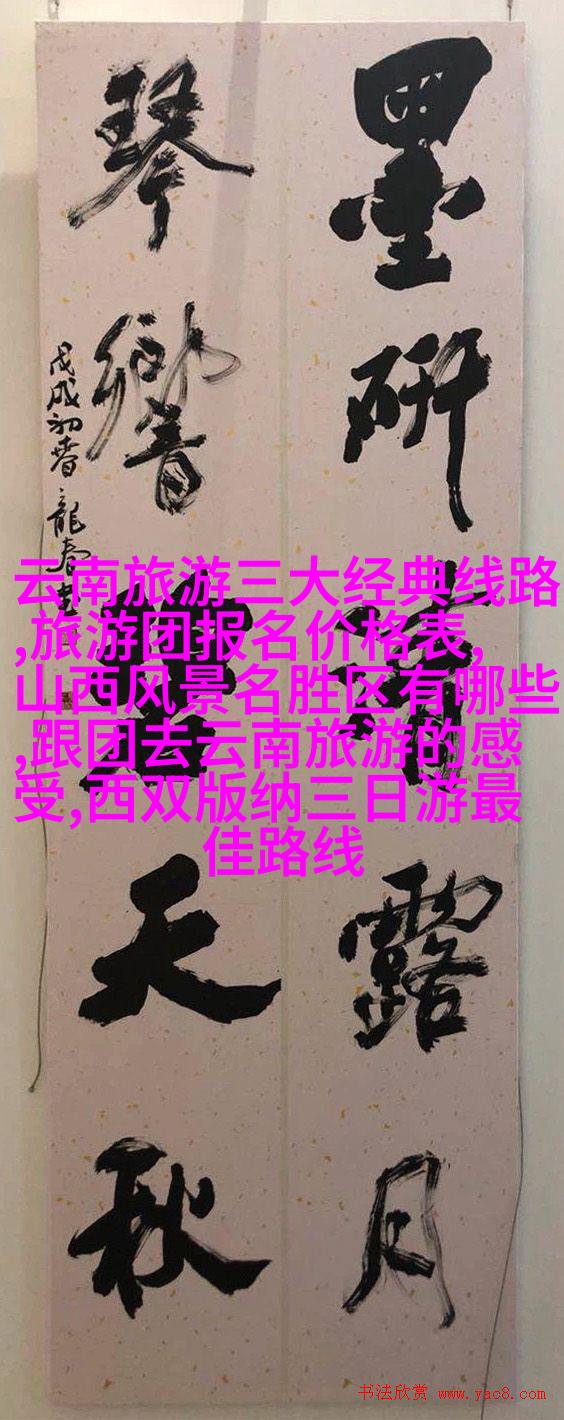 墨研清露月
琴響碧天秋
戊戌初春龍春
云南旅游三大经典线路
,旅游团报名价格表,
山西风景名胜区有哪些
,跟团去云南旅游的感
受,西双版纳三日游最
佳路线
书法欣赏 www.yac8.com